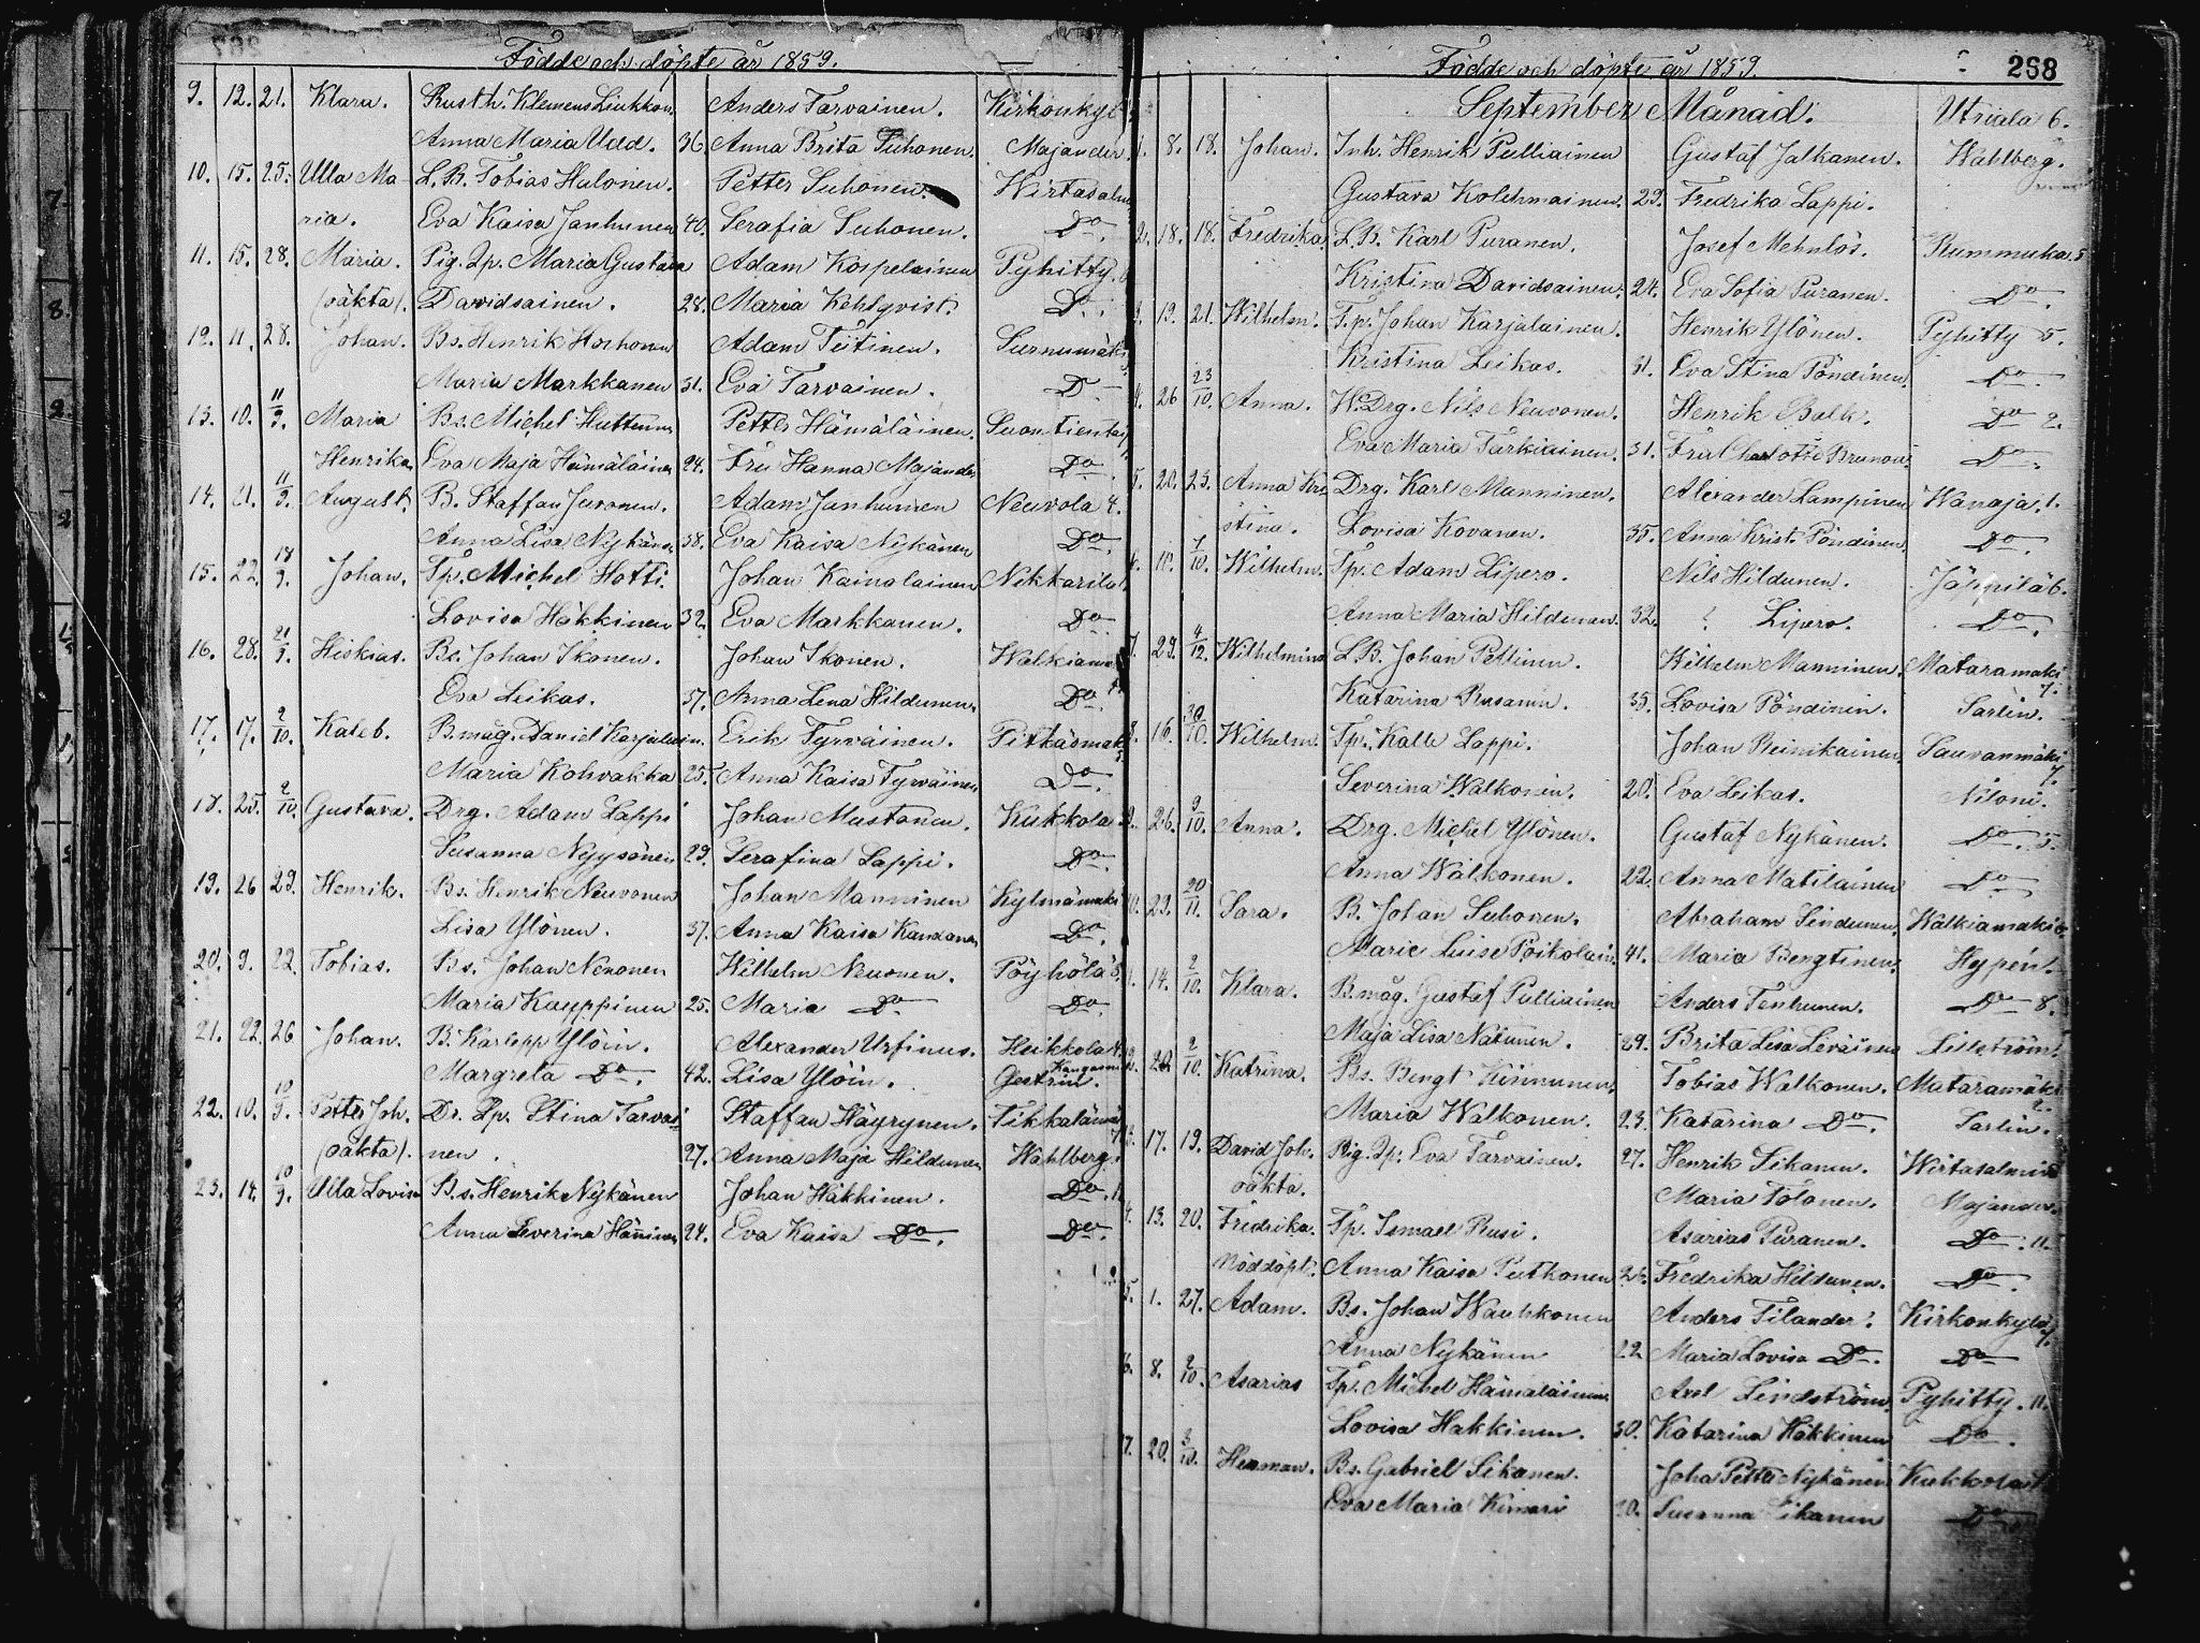 Födde och döpte år 1859.
9. 12. 21. Klara. Rusth. Klemens Liukkon. Anders Tarvainen. Kirkonkyl
Anna Maria Udd. 36. Anna Brita Suhonen. Majander
10. 15. 25. Ulla Ma- L.B. Tobias Halonen. Petter Suhonen. Wirtasalm
ria. Eva Kaisa Janhunen 40. Serafia Suhonen. Do.
11. 15. 28. Maria. Pig. Ip. Maria Gustava Adam Kospelainen Pyhitty.
(oäkta). Davidsainen. 28. Maria Kehlqvist. Do.
12. 11. 28. Johan. Bs. Henrik Hoshonen Adam Tiitinen. Surnumäki
Maria Markkanen 31. Eva Tarvainen. D
13. 10. 11/9. Maria Bs. Michel Huttunen Petter Hämäläinen. Suontientai
Henrika. Eva Maja Hämäläinen 24. Fru Hanna Majander Do
14. 21. 11/9. August. B. Staffan Juvonen. Adam Janhunen Neuvola 4.
Anna Lisa Nykänen 38. Eva Kaisa Nykänen Do.
15. 22. 18/9. Johan. Tp. Michel Hotti. Johan Kainolainen Nikkarila
Lovisa Häkkinen 32. Eva Markkanen. Do
16. 28. 21/9. Hiskias. Bs. Johan Ikonen. Johan Ikonen. Walkiamä
Eva Leikas. 37. Anna Lena Hildunen. Do.
17. 17. 2/10. Kaleb. B.måg. Daniel Karjalain. Erik Tyrväinen. Pitkäsmäk
Maria Kohvakka 25. Anna Kaisa Tyrväinen Do.
18. 25. 2/10. Gustava. Drg. Adam Lappi Johan Mustonen. Kukkola
Susanna Nyysönen 29. Serafina Lappi. Do.
19. 26 29. Henrik. Bs. Henrik Neuvonen Johan Manninen Kylmämäki
Lisa Ylönen. 37. Anna Kaisa Kandanen Do.
20. 9. 22. Tobias. Bs. Johan Nenonen Wilhelm Neuonen. Pöyhölä
Maria Kauppinen 25. Maria Do Do.
21. 22. 26 Johan. B. Karl epp Ylöin. Alexander Urfinus. Heikkola 4.
Margreta Do. 42. Lisa Ylöin. Gestrin.
22. 10. 10/9. Petter Joh. Dr. Lp. Stina Tarvai Staffan Häyrynen. Tikkalämä
(oäkta). nen. 27. Anna Maja Hildunen Wahlberg.
23. 14. 10/9. Ulla Lovisa Bs. Henrik Nykänen Johan Häkkinen. Do.
Anna Severina Hänninen 24. Eva Kaisa Do. Do.
Födde och döpte år 1859. 268
September Månad. Utriala 6.
1. 8. 18. Johan. Inh. Henrik Pulliainen Gustaf Jalkanen. Wahlberg.
Gustava Kolehmainen. 29. Fredrika Lappi.
2. 18. 18. Fredrika. L.B. Karl Puranen. Josef Mehnlös. Rummuka 5
Kristina Davidsainen. 24. Eva Sofia Puranen. Do.
3. 19. 21. Wilhelm. T.p. Johan Karjalainen. Henrik Ylönen. Pyhitty 5.
Kristina Leikas. 31. Eva Stina Pöndinen. Do.
4. 26 23/10. Anna. W.Drg. Nils Neuvonen. Henrik Balk. Do 2.
Eva Maria Tarkiainen. 31. Fru Charlotte Brunou. Do.
5. 20. 25. Anna Kri- Drg. Karl Manninen. Alexander Lampinen Wanaja 1.
stina. Lovisa Kovanen. 35. Anna Krist. Pöndinen. Do.
6. 10. 7/10. Wilhelm. Tp. Adam Lipero. Nils Hildunen. Jäppilä 6.
Anna Maria Hildunen. 32. Lipero. Do.
7. 29. 4/12. Wilhelmina L.B. Johan Pellinen. Wilhelm Manninen. Mataramäki 7.
Katarina Rusanen. 35. Lovisa Pöndinen. Sarlin.
8. 16. 30/10. Wilhelm. Tp. Kalle Lappi. Johan Reinikainen Sauvanmäki 7.
Severina Walkonen. 20. Eva Leikas. Niloni.
9. 26. 9/10. Anna. Drg. Michel Ylönen. Gustaf Nykänen. Do. 5.
Anna Walkonen. 22. Anna Matilainen Do
10. 29. 20/11. Sara. B. Johan Suhonen. Abraham Sindunen. Walkiamäki
Marie Luise Poikolain. 41. Maria Bengtinen. Hypén.
1. 14. 2/10. Klara. B.måg. Gustaf Pulliainen Anders Tenhunen. Do 8.
Maja Lisa Natunen. 29. Brita Lisa Leväinen Lillström.
2/10. Katrina. Bs. Bengt Kinnunen. Tobias Walkonen. Mataramäki 2.
Maria Walkonen. 23. Katarina Do. Sarlin.
17. 19. David Joh. Pig. Ip. Eva Tarvainen. 27. Henrik Sikanen. Wirtasalmi
oäkta. Maria Tolonen. Majander.
4. 13. 20. Fredrika. Tp. Ismael Rusi. Asarias Puranen. Do. 11.
Nöddöpt. Anna Kaisa Putkonen 26. Fredrika Hildunen. Do.
5. 1. 27. Adam. Bs. Johan Wauhkonen Anders Filander. Kirkonkylä 7.
Anna Nykänen 22 Maria Lovisa Do. Do
6. 8. 2/10. Asarias Tp. Michel Hämäläinen Axel Lindström. Pyhitty. 11.
Lovisa Häkkinen. 30. Katarina Häkkinen Do.
7. 20. 3/10. Herman. Bs. Gabriel Sikanen. Joha Petter Nykänen Kukkola
Eva Maria Kimari Susanna Sikanen Do